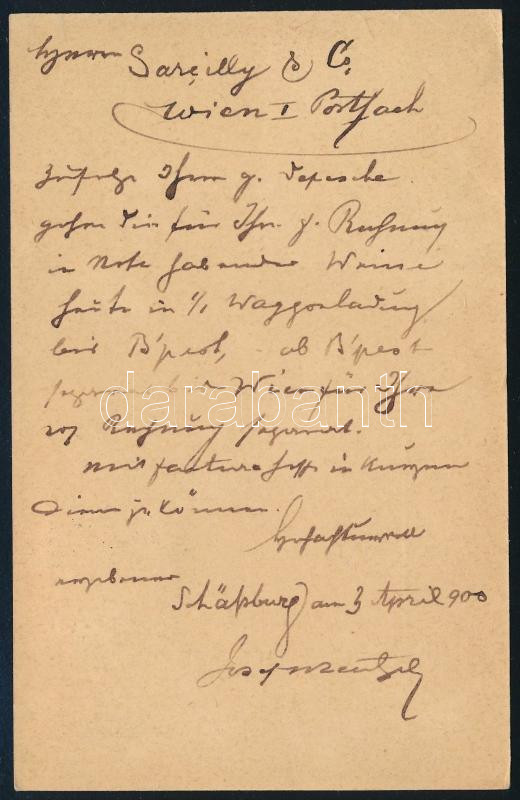 Herrn
Sarçilly & Co.
Wien I Postfach
Zufolge Ihrer g. Depesche
gehen die für Ihre g. Rechnung
in Nota habenden Weine
heute in 1/1 Waggonladung
bis B'pest, ab B'pest
Wien für Ihre
Rechnung separat.
Mit factura hoffe in Kurzem
dienen zu können.
Hochachtungsvoll
ergebener
Schäßburg am 3 April 900
Josef
darabanth